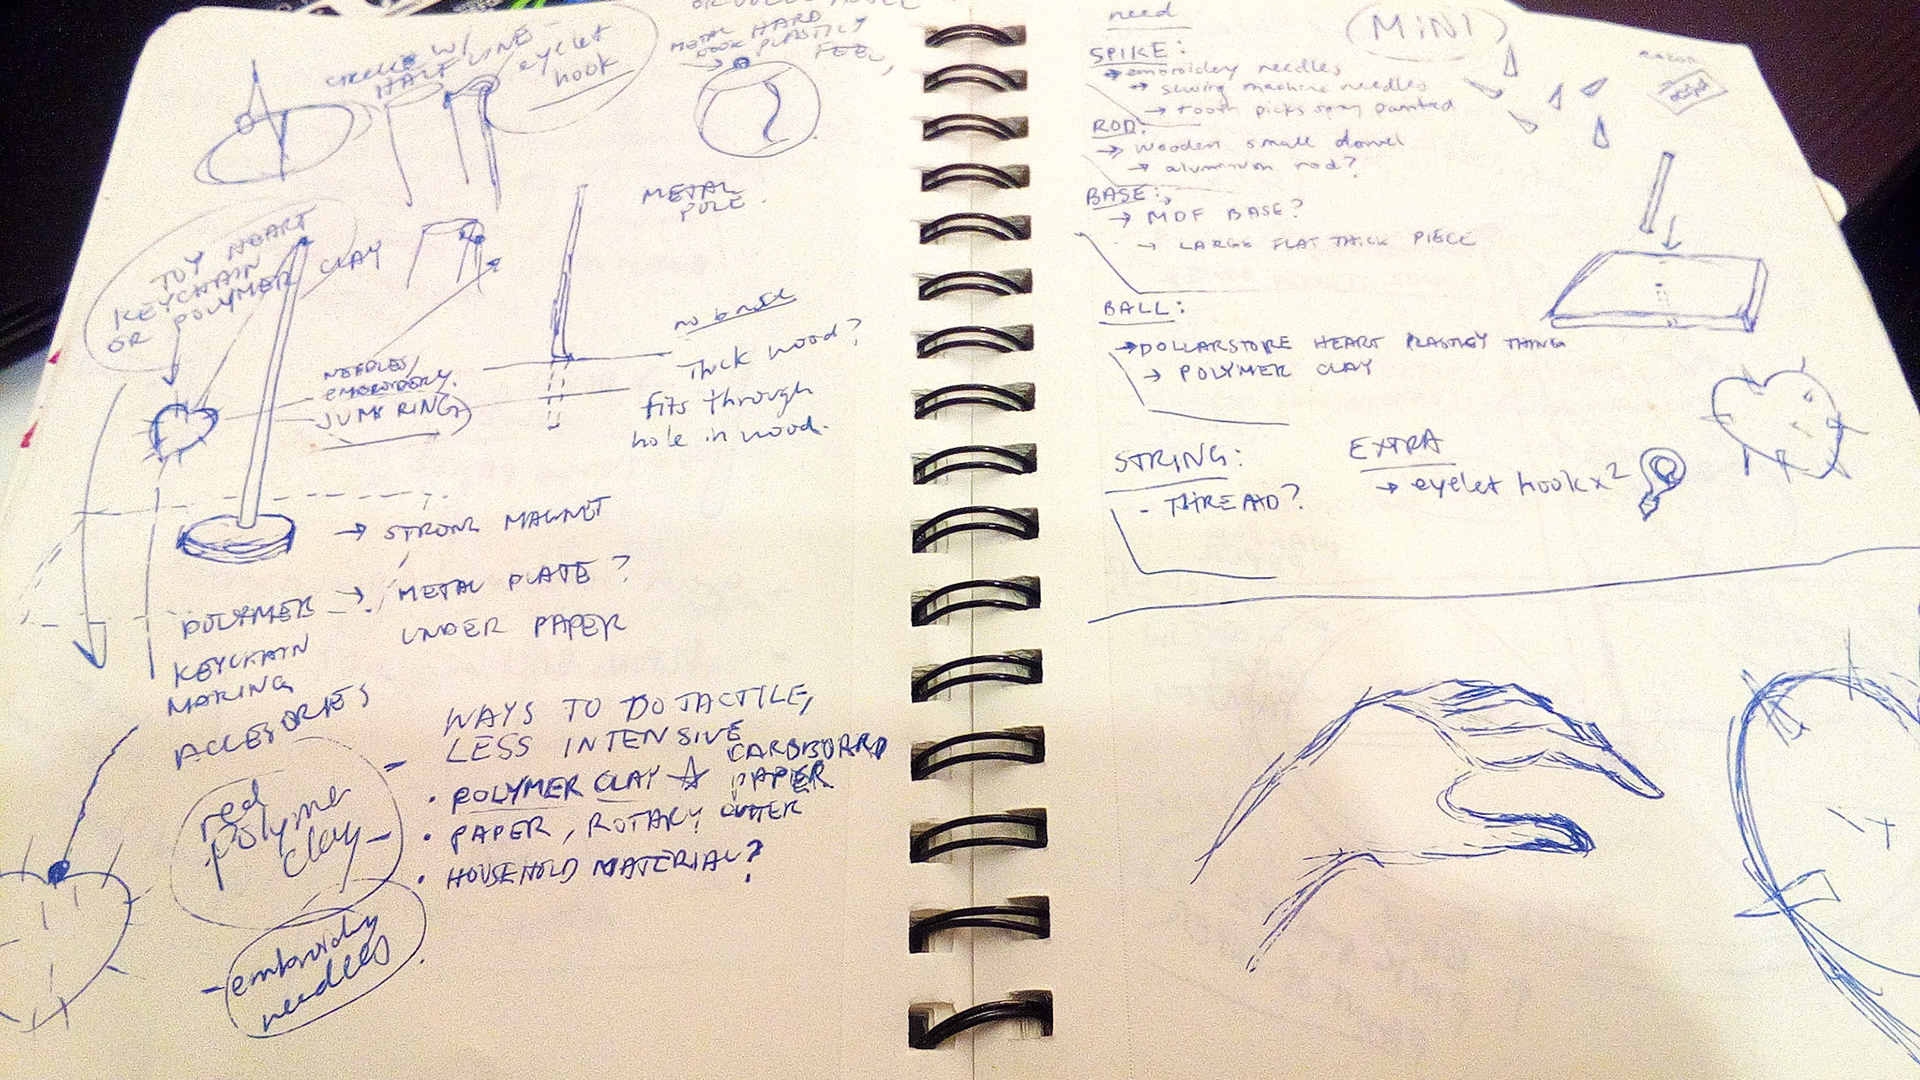 CIRCLE W/
HALF LINE -
eyelet
hook
METAL HARD
LOOK PLASTICY
FEEL,
METAL
POLE.
TOY HEART
KEYCHAIN
OR POLYMER CLAY
NEEDLES/
EMBROIDERY.
JUMP RING)
Thick wood?
fits through
hole in wood.
→ STRONG MAGNET
→ METAL PLATE?
UNDER PAPER
POLYMER
KEYCHAIN
MAKING
ACCESORIES
- WAYS TO DO TACTILE,
LESS INTENSIVE
• POLYMER CLAY ☆ CARDBOARD
PAPER
• PAPER, ROTARY CUTTER
• HOUSEHOLD MATERIAL?
red
polymer
clay
- embroidey
needles
need
MINI
SPIKE:
→ embroidey needles
→ sewing machine needles
→ tooth picks spray painted
RAZOR
ROD:
→ wooden small dowel
→ aluminum rod?
BASE:
→ MDF BASE?
→ LARGE FLAT THICK PIECE
BALL:
→ DOLLARSTORE HEART PLASTICY THING
→ POLYMER CLAY
STRING:
- THREAD?
EXTRA
→ eyelet hook x2